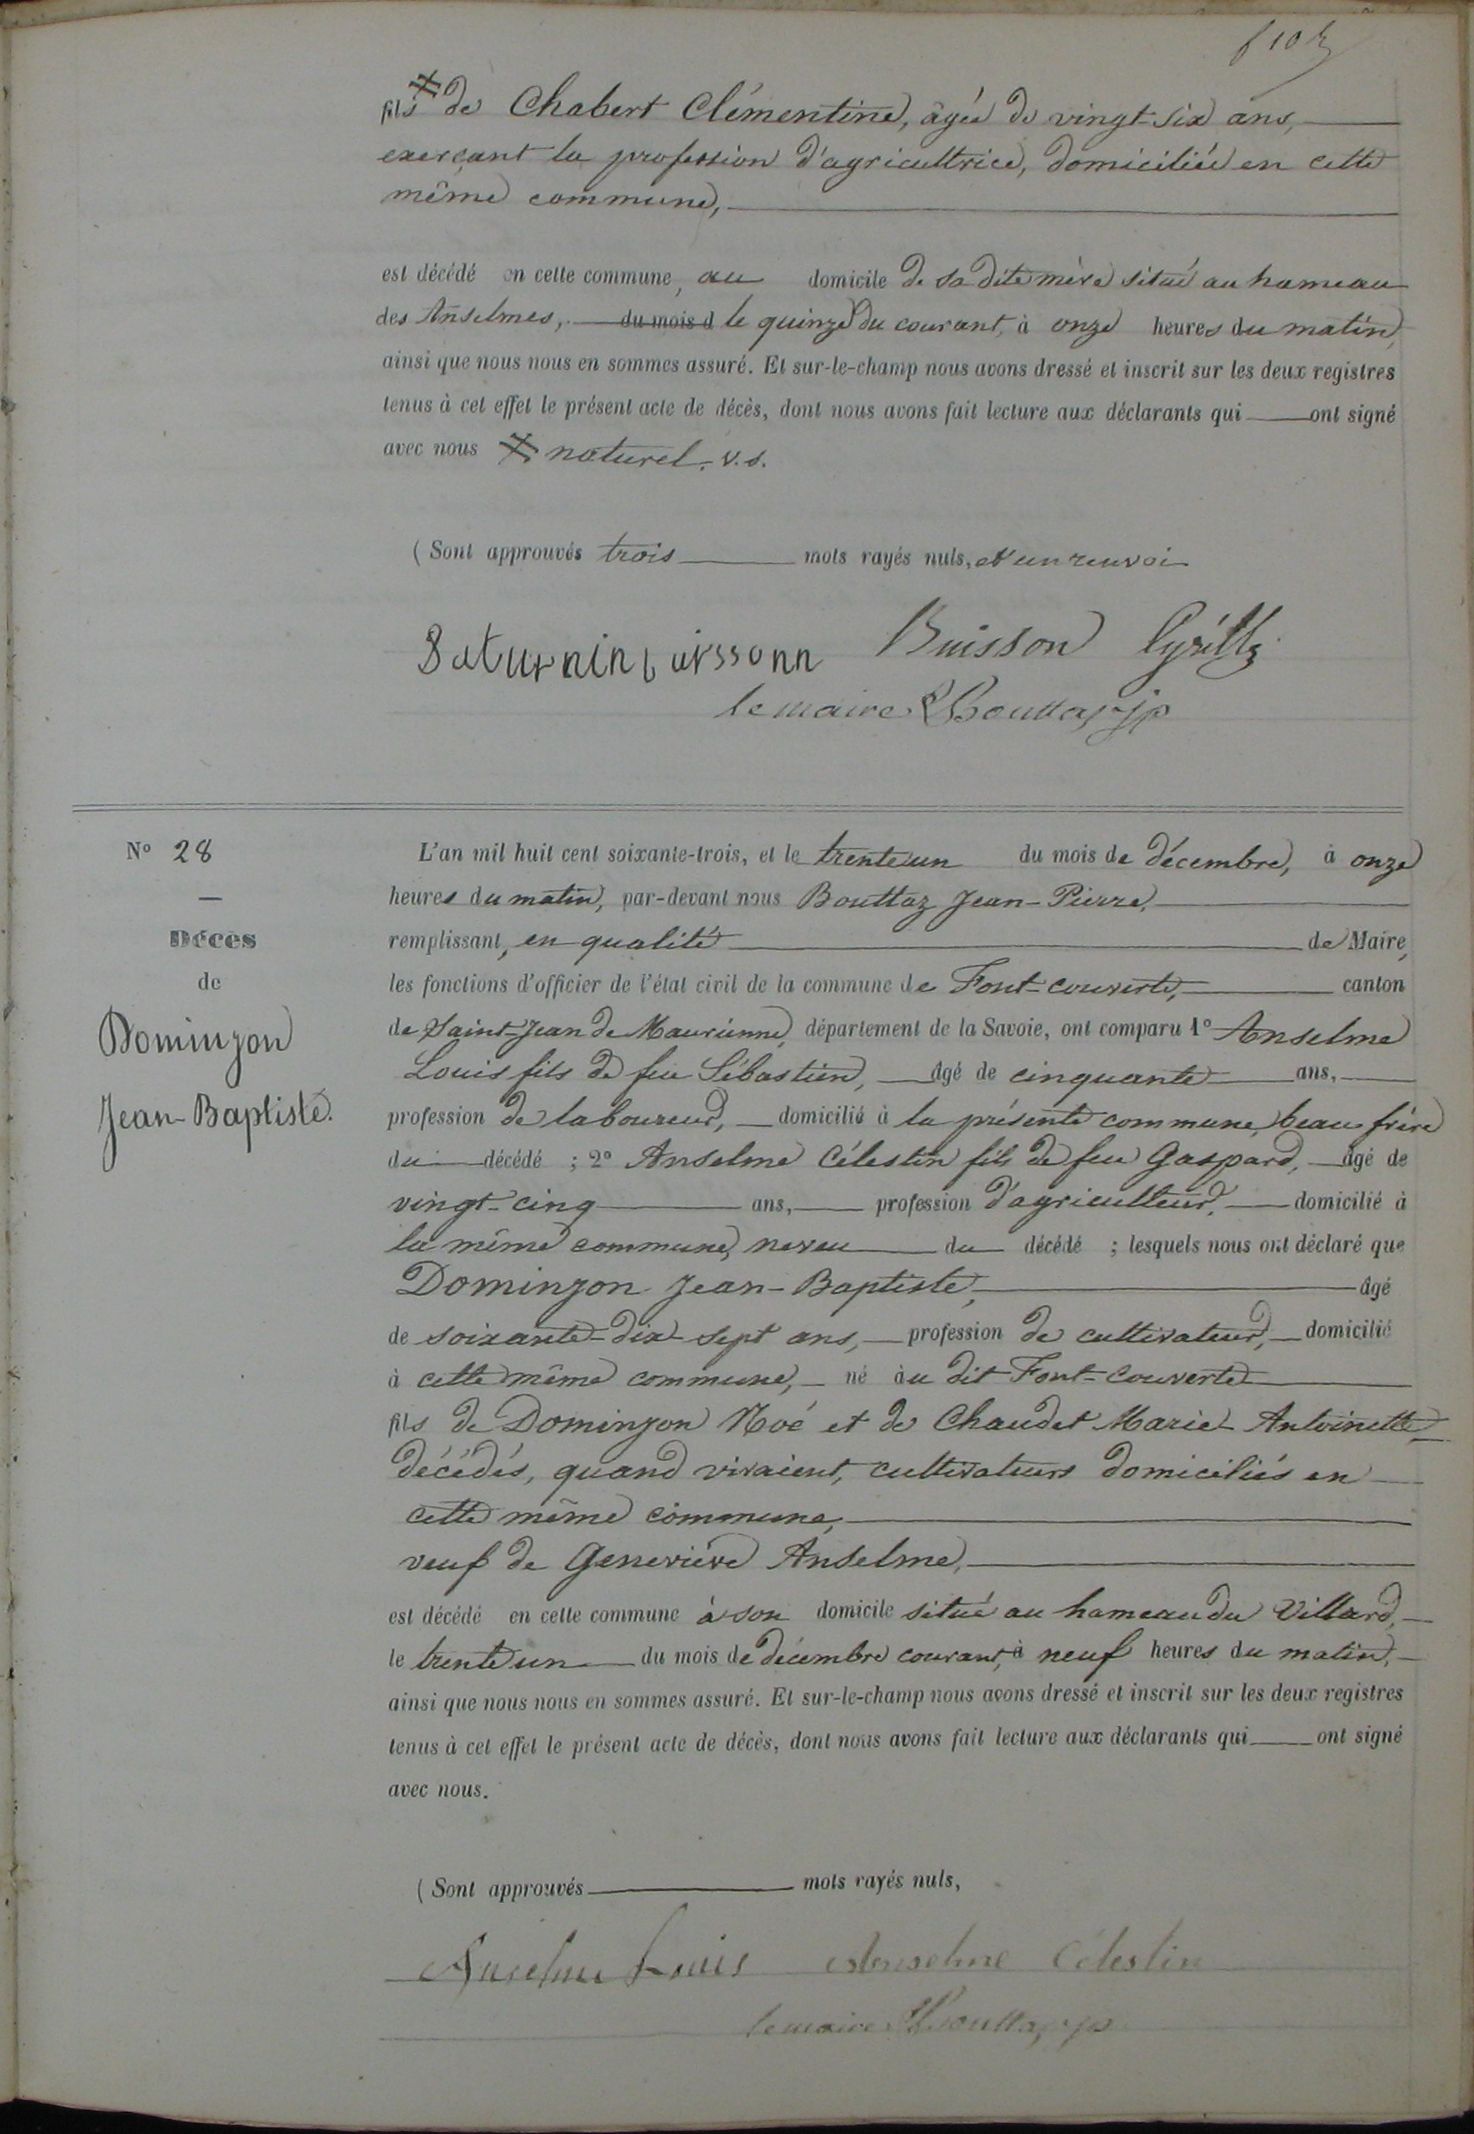 fils ⌗ de Chabert Clémentine, âgée de vingt-six ans,
exerçant la profession d'agricultrice, domiciliée en cette
même commune,
est décédé en cette commune, au domicile de sa dite mère situé au hameau
des Anselmes, du mois d le quinze du courant, à onze heures du matin,
ainsi que nous nous en sommes assuré. Et sur-le-champ nous avons dressé et inscrit sur les deux registres
tenus à cet effet le présent acte de décès, dont nous avons fait lecture aux déclarants qui ont signé
avec nous ⌗ naturel. v.s.
(Sont approuvés trois mots rayés nuls, et un renvoi
Saturnin buissonn Buisson Cyrille
le maire Bouttaz jp
N° 28
Décès
de
Dominjon
Jean-Baptiste.
L'an mil huit cent soixante-trois, et le trente un du mois de décembre, à onze
heures du matin, par-devant nous Bouttaz Jean-Pierre,
remplissant, en qualité de Maire,
les fonctions d'officier de l'état civil de la commune de Font-couverte, canton
de Saint-Jean de Maurienne, département de la Savoie, ont comparu 1° Anselme
Louis fils de feu Sébastien, âgé de cinquante ans,
profession de laboureur, domicilié à la présente commune, beau frère
du décédé ; 2° Anselme Célestin fils de feu Gaspard, âgé de
vingt-cinq ans, profession d'agriculteur, domicilié à
la même commune, neveu du décédé ; lesquels nous ont déclaré que
Dominjon Jean-Baptiste, âgé
de soixante-dix-sept ans, profession de cultivateur, domicilié
à cette même commune, né àu dit Font-Couverte
fils de Dominjon Noé et de Chaudet Marie-Antoinette
décédés, quand vivaient, cultivateurs domiciliés en
cette même commune,
veuf de Geneviève Anselme,
est décédé en cette commune à son domicile situé au hameau du Villard,
le trente un du mois de décembre courant, à neuf heures du matin,
ainsi que nous nous en sommes assuré. Et sur-le-champ nous avons dressé et inscrit sur les deux registres
tenus à cet effet le présent acte de décès, dont nous avons fait lecture aux déclarants qui ont signé
avec nous.
(Sont approuvés mots rayés nuls,
Anselme Louis Anselme Célestin
le maire Bouttaz jp